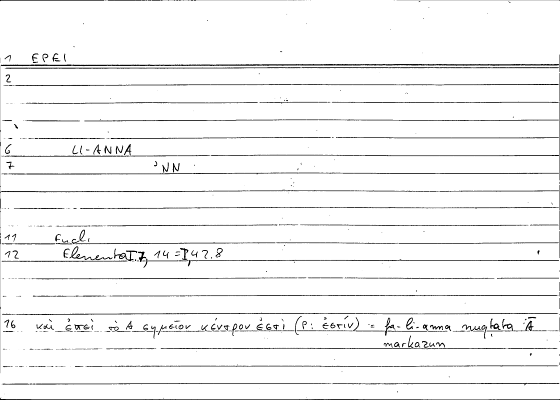 1 EPEI
2
6 LI-ANNA
7 ʾNN
11 Eucl.
12 Elementa I 7, 14 = I, 42.8
16 καὶ ἐπεὶ τὸ A σημεῖον κέντρον ἐστὶ (P: ἐστίν) = fa-li-anna nuqṭata Ā
markazun